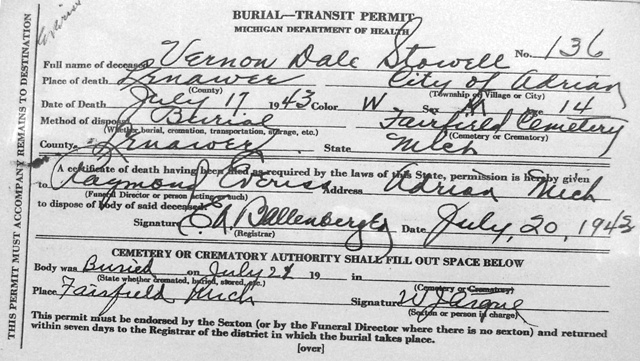 BURIAL—TRANSIT PERMIT
MICHIGAN DEPARTMENT OF HEALTH
Full name of deceased Vernon Dale Stowell No. 136
Place of death Lenawee City of Adrian
(County) (Township or Village or City)
Date of Death July 17 1943 Color W Sex M Age 14
Method of disposal Burial Fairfield Cemetery
(Whether burial, cremation, transportation, storage, etc.) (Cemetery or Crematory)
County Lenawee State Mich
A certificate of death having been filed as required by the laws of this State, permission is hereby given
to Raymond Everiss Address Adrian Mich
(Funeral Director or person acting as such)
to dispose of body of said deceased.
Signature Date July, 20, 1943
(Registrar)
CEMETERY OR CREMATORY AUTHORITY SHALL FILL OUT SPACE BELOW
Body was Buried on July 19 in
(State whether cremated, buried, stored, etc.) (Cemetery or Crematory)
Place Fairfield Mich Signature
(Sexton or person in charge)
This permit must be endorsed by the Sexton (or by the Funeral Director where there is no sexton) and returned
within seven days to the Registrar of the district in which the burial takes place.
[over]
THIS PERMIT MUST ACCOMPANY REMAINS TO DESTINATION